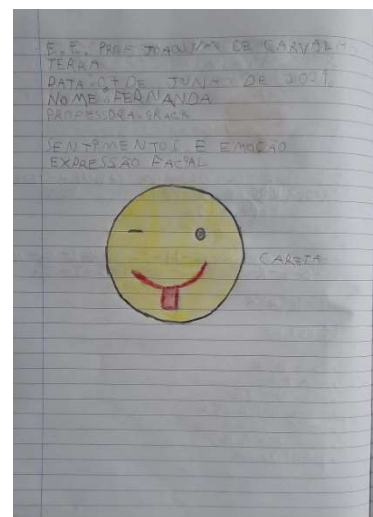 E. E. PROF JOAQUIM DE CARVALHO
TERRA
DATA 07 DE JUNHO DE 2021
NOME: FERNANDA
PROFESSORA: GRAÇA
SENTIMENTOS E EMOÇÃO
EXPRESSÃO FACIAL
CARETA